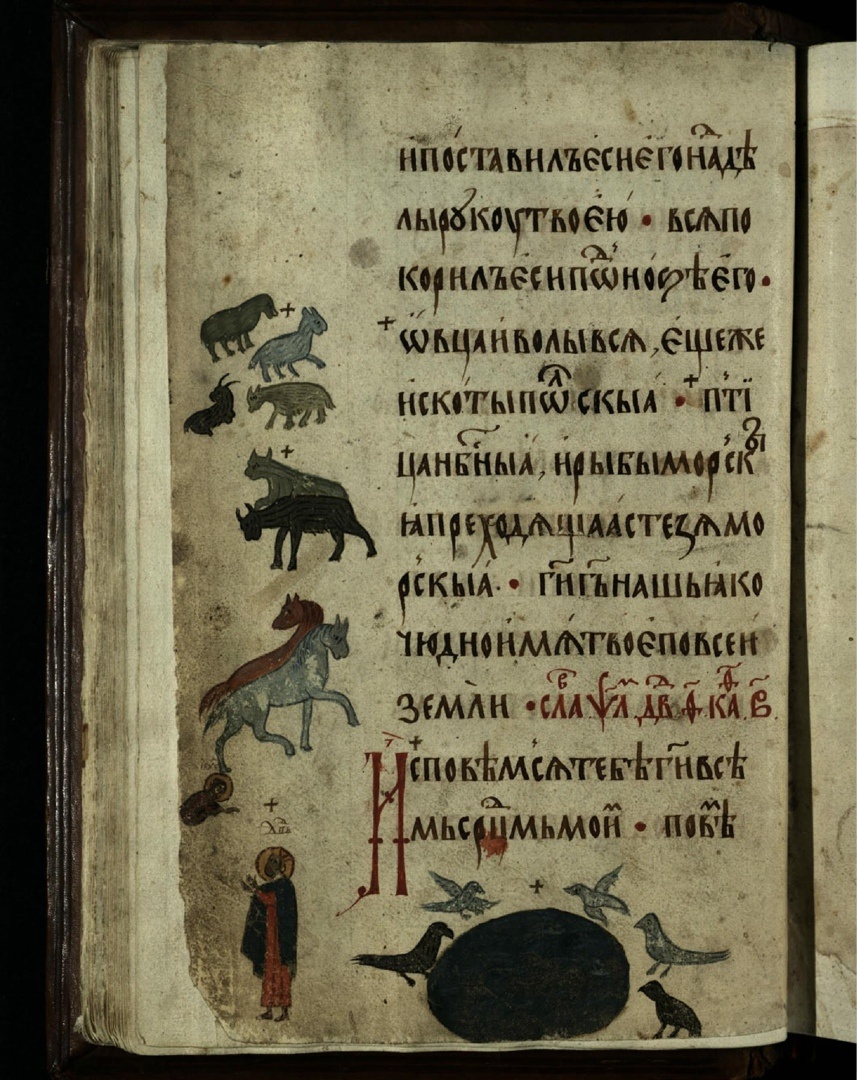 ипоставилъ еси его над дѣ
лы рꙋкоу твоею • всѧ по
корилъ еси под ноѕѣ его •
ѡвца и волы всѧ, еще же
и скоты полскыа • пті
ца нбⷭ҇ныа, и рыбы морскы
ꙗ преходѧщіа астеѕѧ мо
рскыа • гⷭ҇и гь҃ нашь ꙗко
чюдно имѧ твое по всеи
земли •
Исповѣмсѧ тебѣ гⷭ҇и всѣ
мь срⷣцмь моиⷨ • повѣ